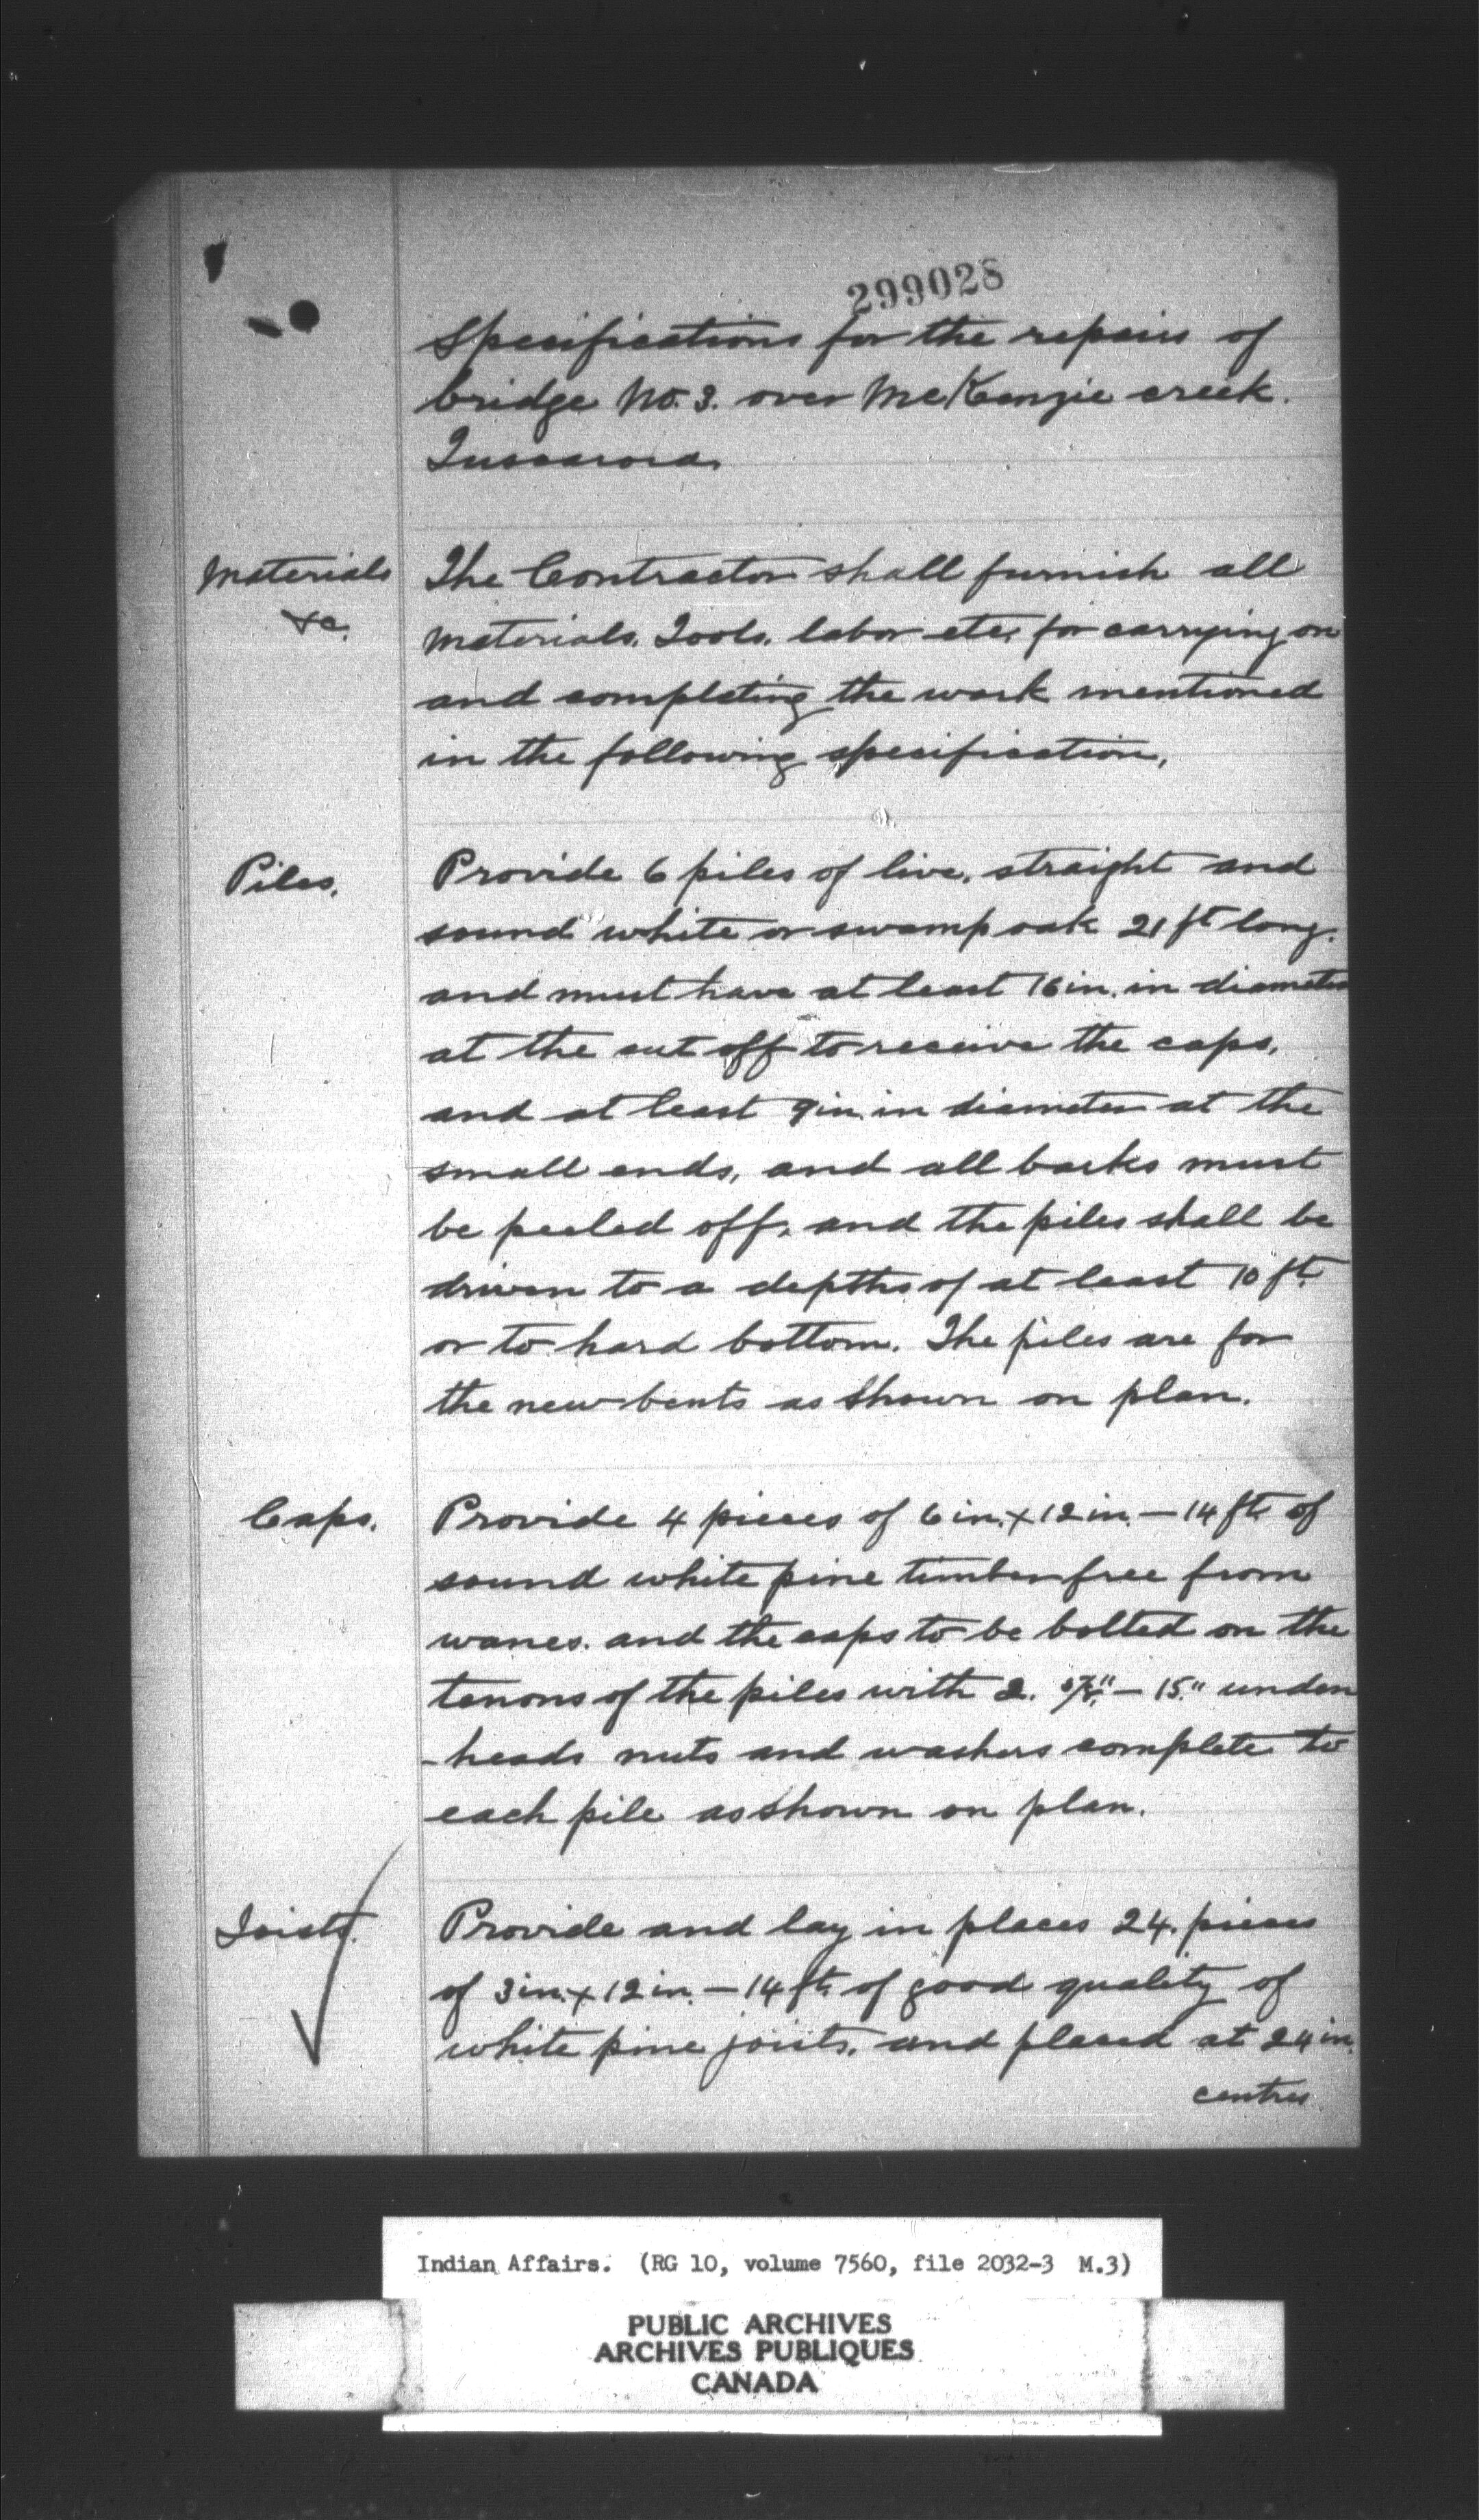 299028
Specifications for the repairs of
bridge No. 3. over McKenzie creek.
Tuscarora.
Materials
&c.
The Contractor shall furnish all
materials. Tools. labor etc. for carrying on
and completing the work mentioned
in the following specification.
Piles.
Provide 6 piles of live. straight and
sound white or swamp oak 21 ft long.
and must have at least 16 in. in diameter
at the cut off to receive the caps.
and at least 9 in. in diameter at the
small ends, and all barks must
be peeled off, and the piles shall be
driven to a depths of at least 10 ft.
or to hard bottom. The piles are for
the new bents as shown on plan.
Caps.
Provide 4 pieces of 6 in. x 12 in. — 14 ft. of
sound white pine timber free from
wanes. and the caps to be bolted on the
tenons of the piles with 2. — 15." under
-heads nuts and washers complete to
each pile as shown on plan.
Joists.
Provide and lay in places 24. pieces
of 3 in. x 12 in. — 14 ft. of good quality of
white pine joists. and placed at 24 in.
centres
Indian Affairs. (RG 10, volume 7560, file 2032-3 M.3)
PUBLIC ARCHIVES
ARCHIVES PUBLIQUES
CANADA